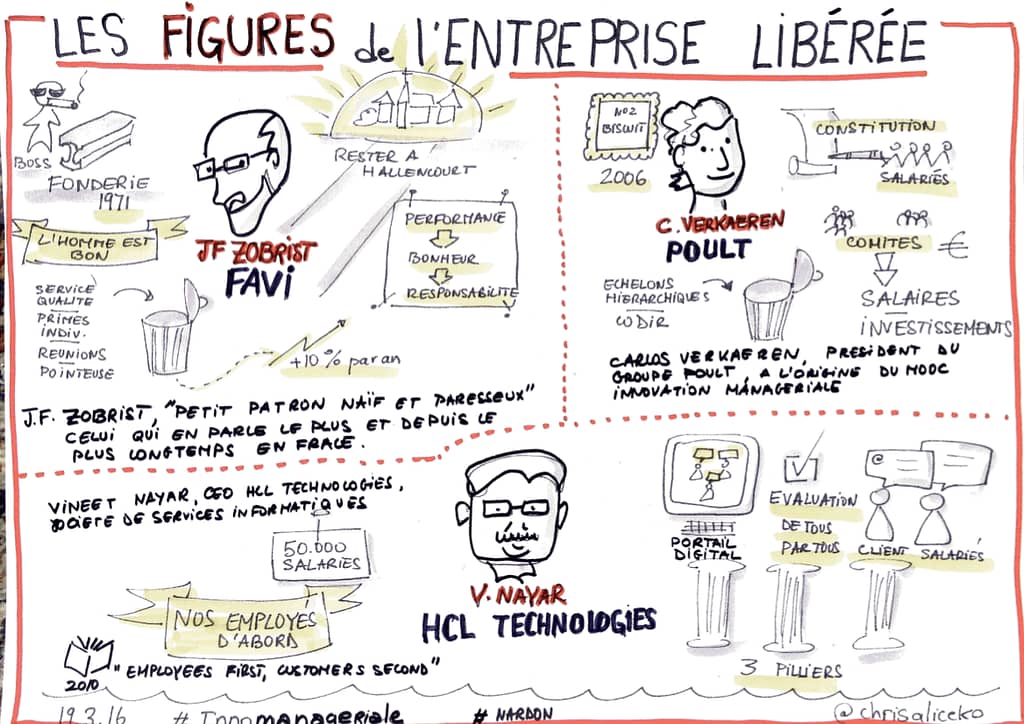 LES FIGURES de L'ENTREPRISE LIBÉRÉE
BOSS
FONDERIE
1971
L'HOMME EST
BON
SERVICE
QUALITE
PRIMES
INDIV.
REUNIONS
POINTEUSE
JF ZOBRIST
FAVI
RESTER A
HALLENCOURT
PERFORMANCE
BONHEUR
RESPONSABILITE
+10% par an
J.F. ZOBRIST, "PETIT PATRON NAÏF ET PARESSEUX"
CELUI QUI EN PARLE LE PLUS ET DEPUIS LE
PLUS LONGTEMPS EN FRACE.
N°2
BISCUIT
2006
C. VERKAEREN
POULT
CONSTITUTION
SALARIÉS
COMITES €
SALAIRES
INVESTISSEMENTS
ECHELONS
HIERARCHIQUES
CODIR
CARLOS VERKAEREN, PRESIDENT DU
GROUPE POULT, A L'ORIGINE DU MOOC
INNOVATION MANAGERIALE
VINEET NAYAR, CEO HCL TECHNOLOGIES,
SOCIETE DE SERVICES INFORMATIQUES
50.000
SALARIES
NOS EMPLOYÉS
D'ABORD
2010
"EMPLOYEES FIRST, CUSTOMERS SECOND"
V. NAYAR
HCL TECHNOLOGIES
PORTAIL
DIGITAL
EVALUATION
DE TOUS
PAR TOUS
@
CLIENT
SALARIÉS
3 PILLIERS
19.3.16
# Innomanageriale
# NARDON
@chrisaliceko